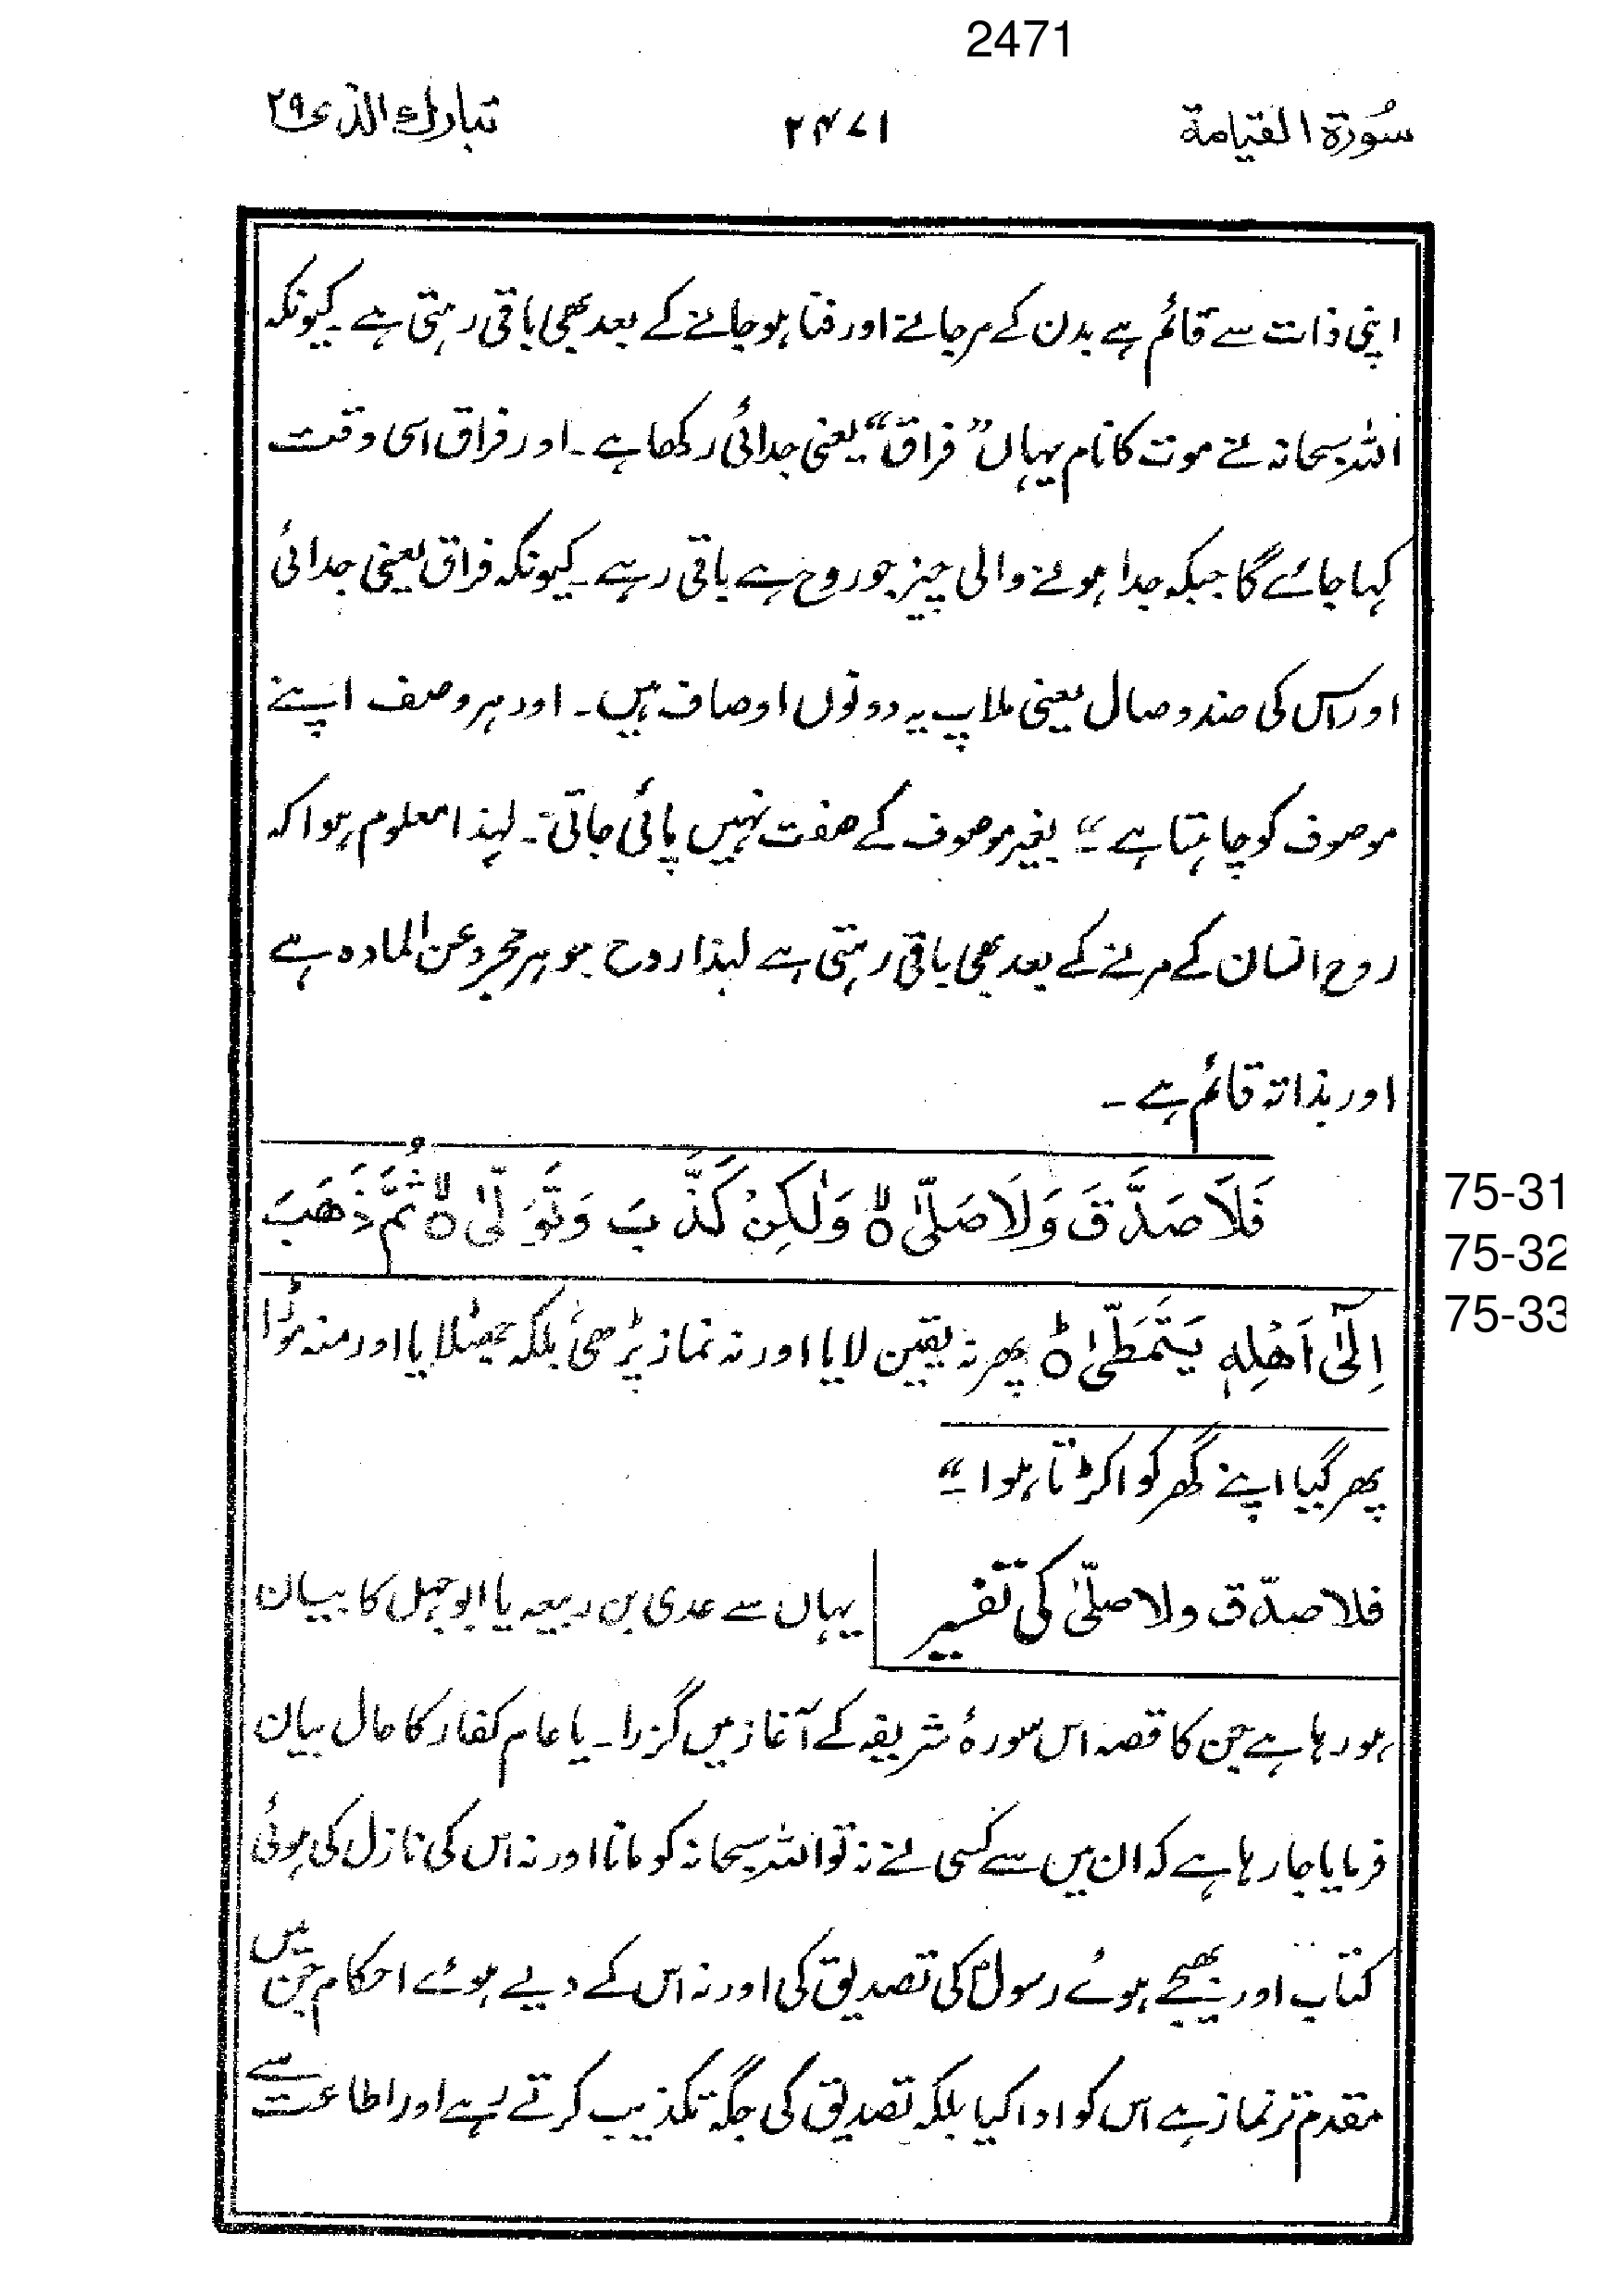 2471
سُورۃ القیامۃ ۲۴۷۱ تبارك الذی ۲۹
اپنی ذات سے قائم ہے بدن کے مرجانے اور فنا ہوجانے کے بعد بھی باقی رہتی ہے۔ کیونکہ
اللہ سبحانہ نے موت کا نام یہاں ”فراق“ یعنی جدائی رکھا ہے۔ اور فراق اسی وقت
کہا جائے گا جبکہ جدا ہونے والی چیز جو روح ہے باقی رہے۔ کیونکہ فراق یعنی جدائی
اور اس کی ضد وصال یعنی ملاپ یہ دونوں اوصاف ہیں۔ اور ہر وصف اپنے
موصوف کو چاہتا ہے۔“ بغیر موصوف کے صفت نہیں پائی جاتی۔ لہذا معلوم ہوا کہ
روح انسان کے مرنے کے بعد بھی باقی رہتی ہے لہذا روح جوہر مجرد عن المادہ ہے
اور بذاتہ قائم ہے۔
فَلَا صَدَّقَ وَلَا صَلّٰی ۙ وَلٰکِنْ کَذَّبَ وَتَوَلّٰی ۙ ثُمَّ ذَهَبَ
75-31
75-32
75-33
اِلٰۤی اَهْلِهٖ یَتَمَطّٰی ؕ پھر نہ یقین لایا اور نہ نماز پڑھی بلکہ جھٹلایا اور منہ موڑا
پھر گیا اپنے گھر کو اکڑتا ہوا۔“
فلا صدّق ولا صلّٰی کی تفسیر یہاں سے عدی بن ربیعہ یا ابوجہل کا بیان
ہو رہا ہے جن کا قصہ اس سورۂ شریفہ کے آغاز میں گزرا۔ یا عام کفار کا حال بیان
فرمایا جا رہا ہے کہ ان میں سے کسی نے نہ تو اللہ سبحانہ کو مانا اور نہ اس کی نازل کی ہوئی
کتاب اور بھیجے ہوئے رسولؐ کی تصدیق کی اور نہ اس کے دیے ہوئے احکام جن میں
مقدم تر نماز ہے اس کو ادا کیا بلکہ تصدیق کی جگہ تکذیب کرتے رہے اور اطاعت سے